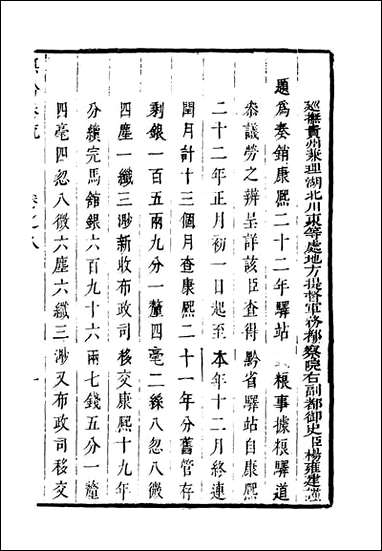 廵撫貴州兼理湖北川東等處地方提督軍務都察院右副都御史臣楊雍建謹
題爲奏銷康熙二十二年驛站 粮事據粮驛道
叅議勞之辨呈詳該臣查得黔省驛站自康熙
二十二年正月初一日起至本年十二月終連
閏月計十三個月查康熙二十一年分舊管存
剩銀一百五兩九分一釐四毫二絲八忽八微
四塵一纖三渺新收布政司移交康熙十九年
分續完馬館銀六百九十六兩七錢五分一釐
四毫四忽八微六塵六纖三渺又布政司移交
撫黔奏疏 卷之八 一